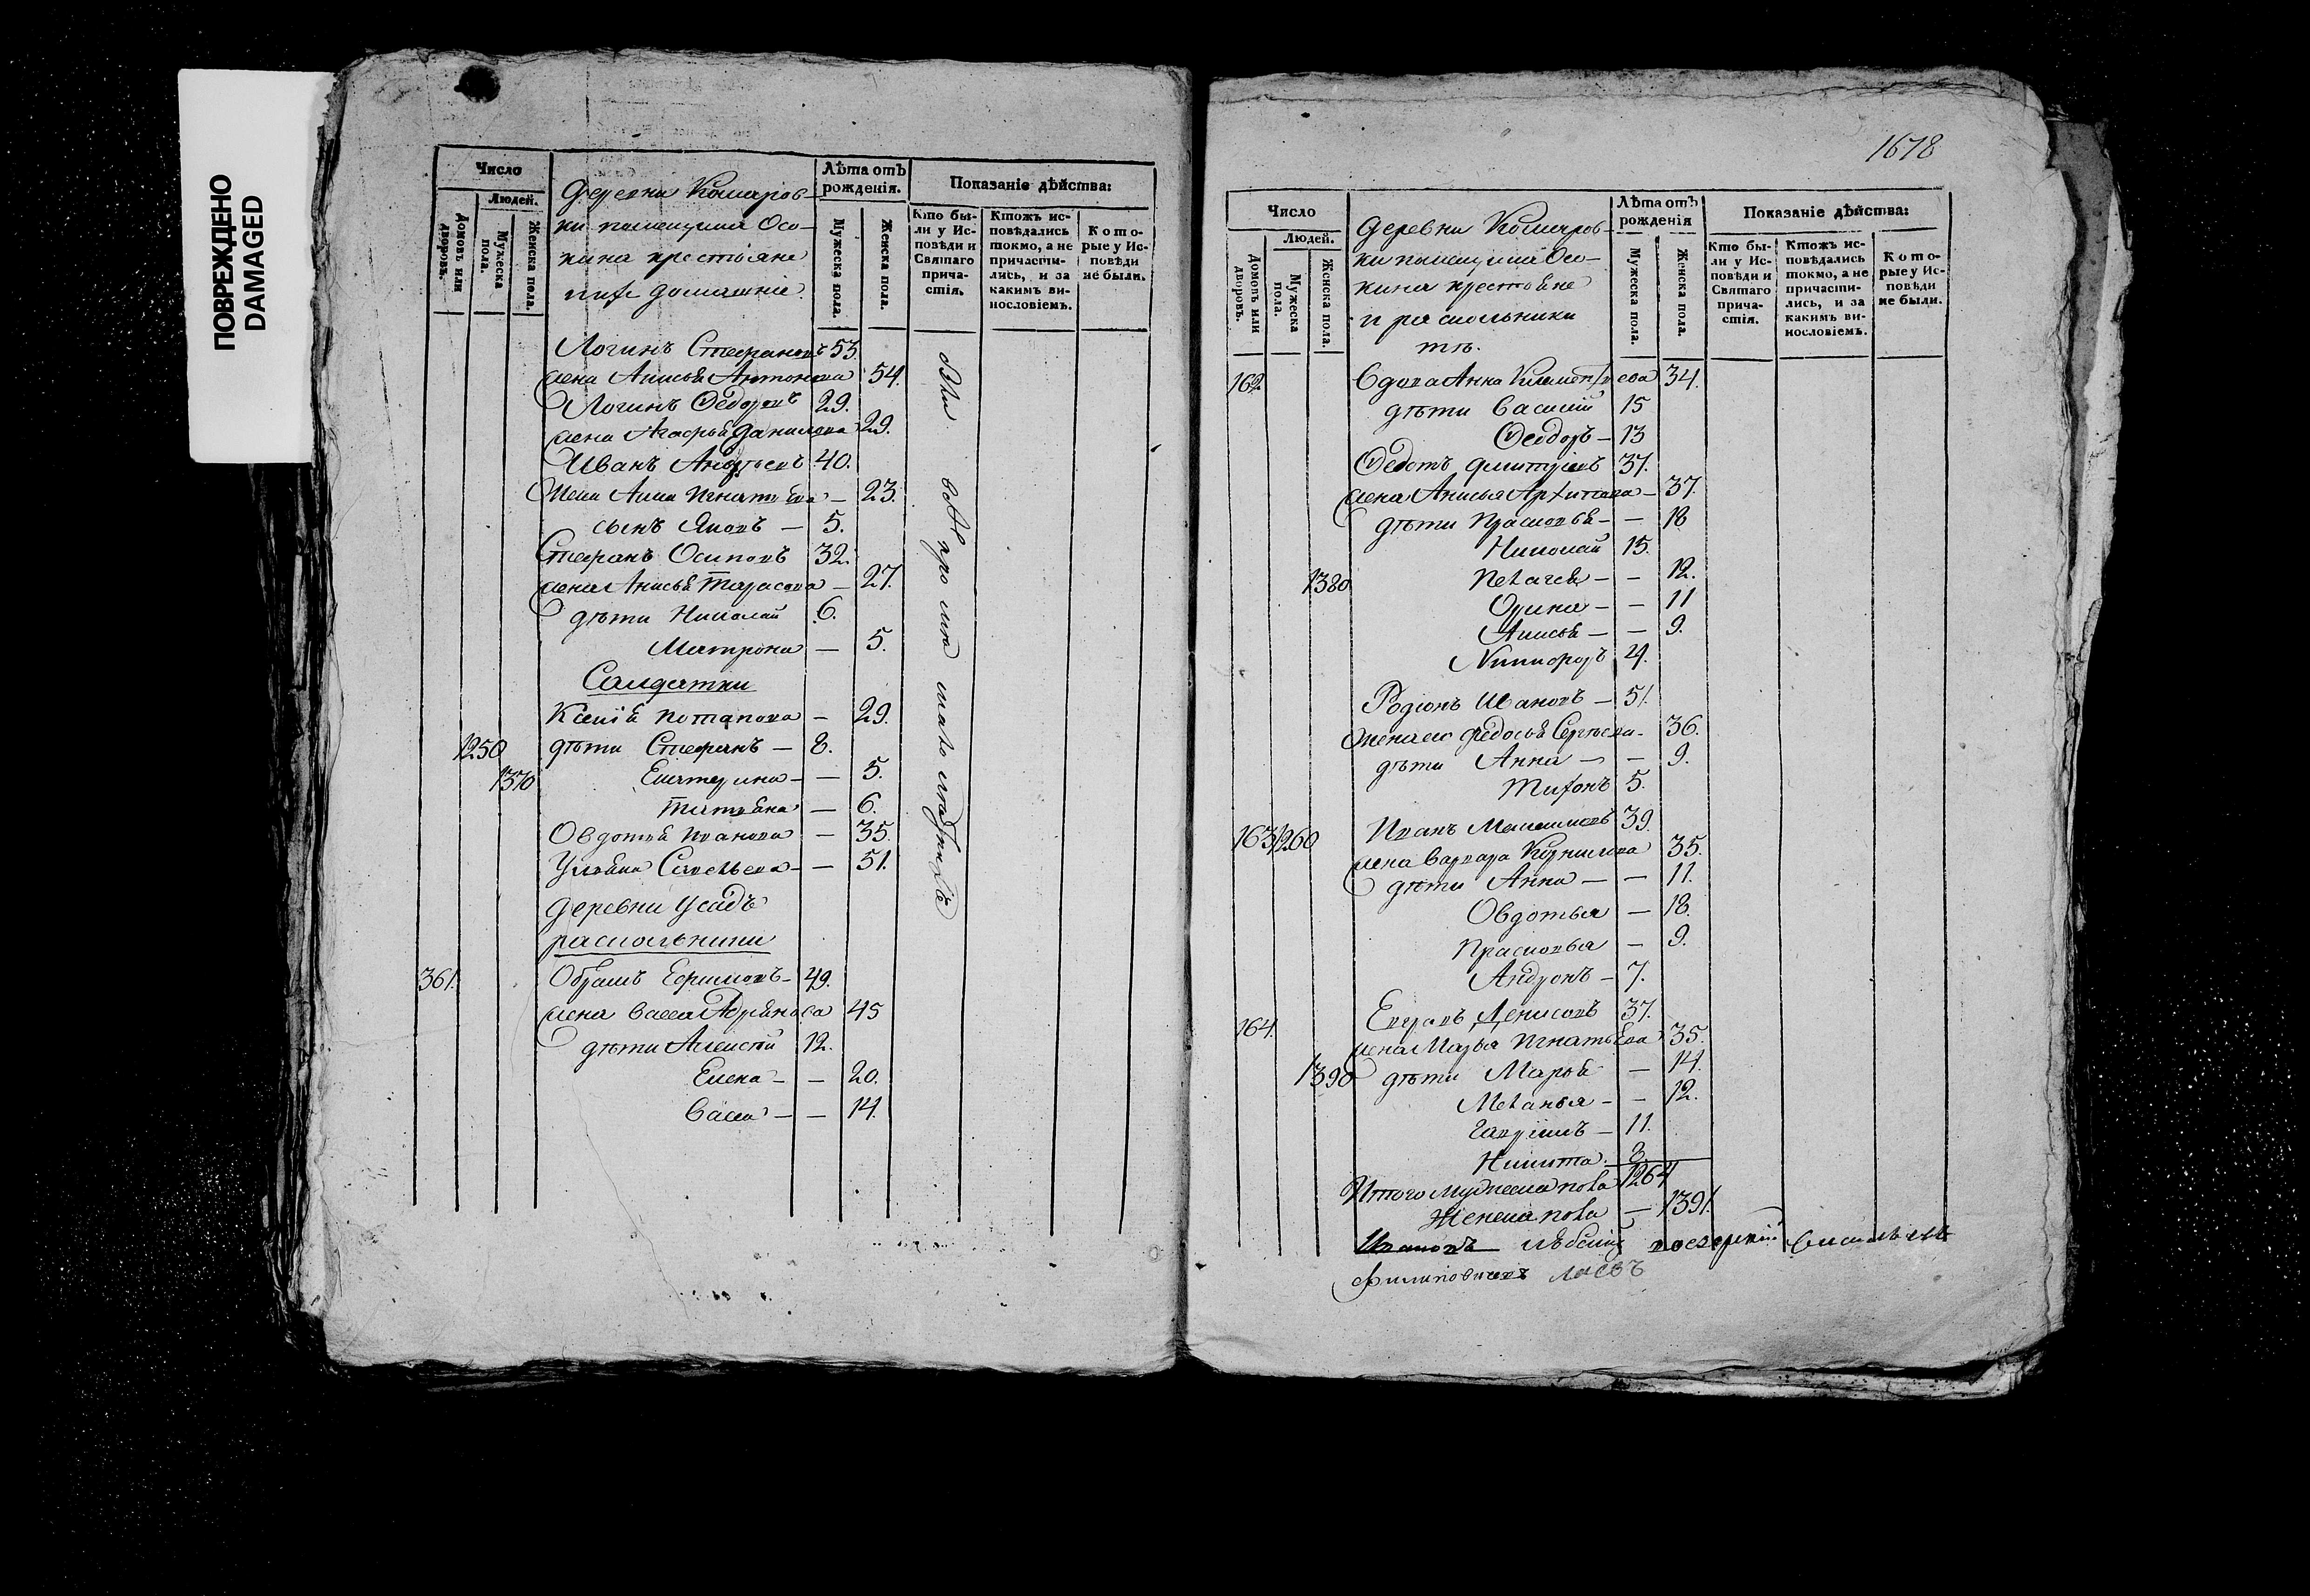 ПОВРЕЖДЕНО
DAMAGED
Число
Людей.
Домовъ или дворовъ.
Мужеска пола.
Женска пола.
деревни Комаров-
ки помещика Осо-
кина крестьяне
ихъ домашніе
Лѣта отъ рожденія.
Мужеска пола.
Женска пола.
Показаніе дѣйства:
Кто бы-
ли у Ис-
повѣди и
Святаго
прича-
стія.
Ктожъ ис-
повѣдались
токмо, а не
причасти-
лись, и за
какимъ ви-
нословіемъ.
Кото-
рые у Ис-
повѣди
не были.
Логинъ Стефановъ 53.
жена Анисья Антонова 54.
Логинъ Федоровъ 29.
жена Агафья Данилова 29.
Иванъ Андреевъ 40.
жена Анна Игнатьева — 23.
сынъ Яковъ — 5.
Стефанъ Осиповъ 32.
жена Анисья Тарасова — 27.
дѣти Николай 6.
Матрона — 5.
Салдатки
Ксенія Потапова — 29.
1250 дѣти Стефанъ — 8.
1370 Екатерина — — 5.
Татьяна — 6.
Овдотья Иванова — 35.
Ульяна Савельева — — 51.
деревни Усадъ
раскольники
361. Обрамъ Ефимовъ — 49.
жена Васса Адріянова 45
дѣти Алексѣй 12.
Елена — — 20.
Васса — — 14.
1678
Число
Людей.
Домовъ или дворовъ.
Мужеска пола.
Женска пола.
деревни Комаров-
ки помещика Осо-
кина крестьяне
и раскольники
тѣ.
Лѣта отъ рожденія
Мужеска пола.
Женска пола.
Показаніе дѣйства:
Кто бы-
ли у Ис-
повѣди и
Святаго
прича-
стія.
Ктожъ ис-
повѣдались
токмо, а не
причасти-
лись, и за
какимъ ви-
нословіемъ.
Кото-
рые у Ис-
повѣди
не были.
162 Вдова Анна Климентьева 34.
дѣти Василій 15
Феодоръ — 13
Федотъ Дмитріевъ 37.
жена Анисья Архипова — 37.
дѣти Прасковья — — 18
Николай 15.
1380 Пелагея — — 12.
Орина — — 11
Анисья — — 9.
Никифоръ 4.
Родіонъ Ивановъ — 51.
жена ево Федосья Сергѣева — 36.
дѣти Анна — — 9.
Тихонъ 5.
163 1260 Иванъ Максимовъ 39.
жена Варвара Корнилова 35.
дѣти Анна — — 11.
Овдотья — 18.
Прасковья — 9.
Андронъ — 7.
164. Егоръ Денисовъ 37.
жена Марья Игнатьева 35.
1390 дѣти Марья — 14.
Меланья — — 12.
Гаврилъ — 11.
Никита. 8.
Итого мужеска пола 1264
Женска пола — 1391.